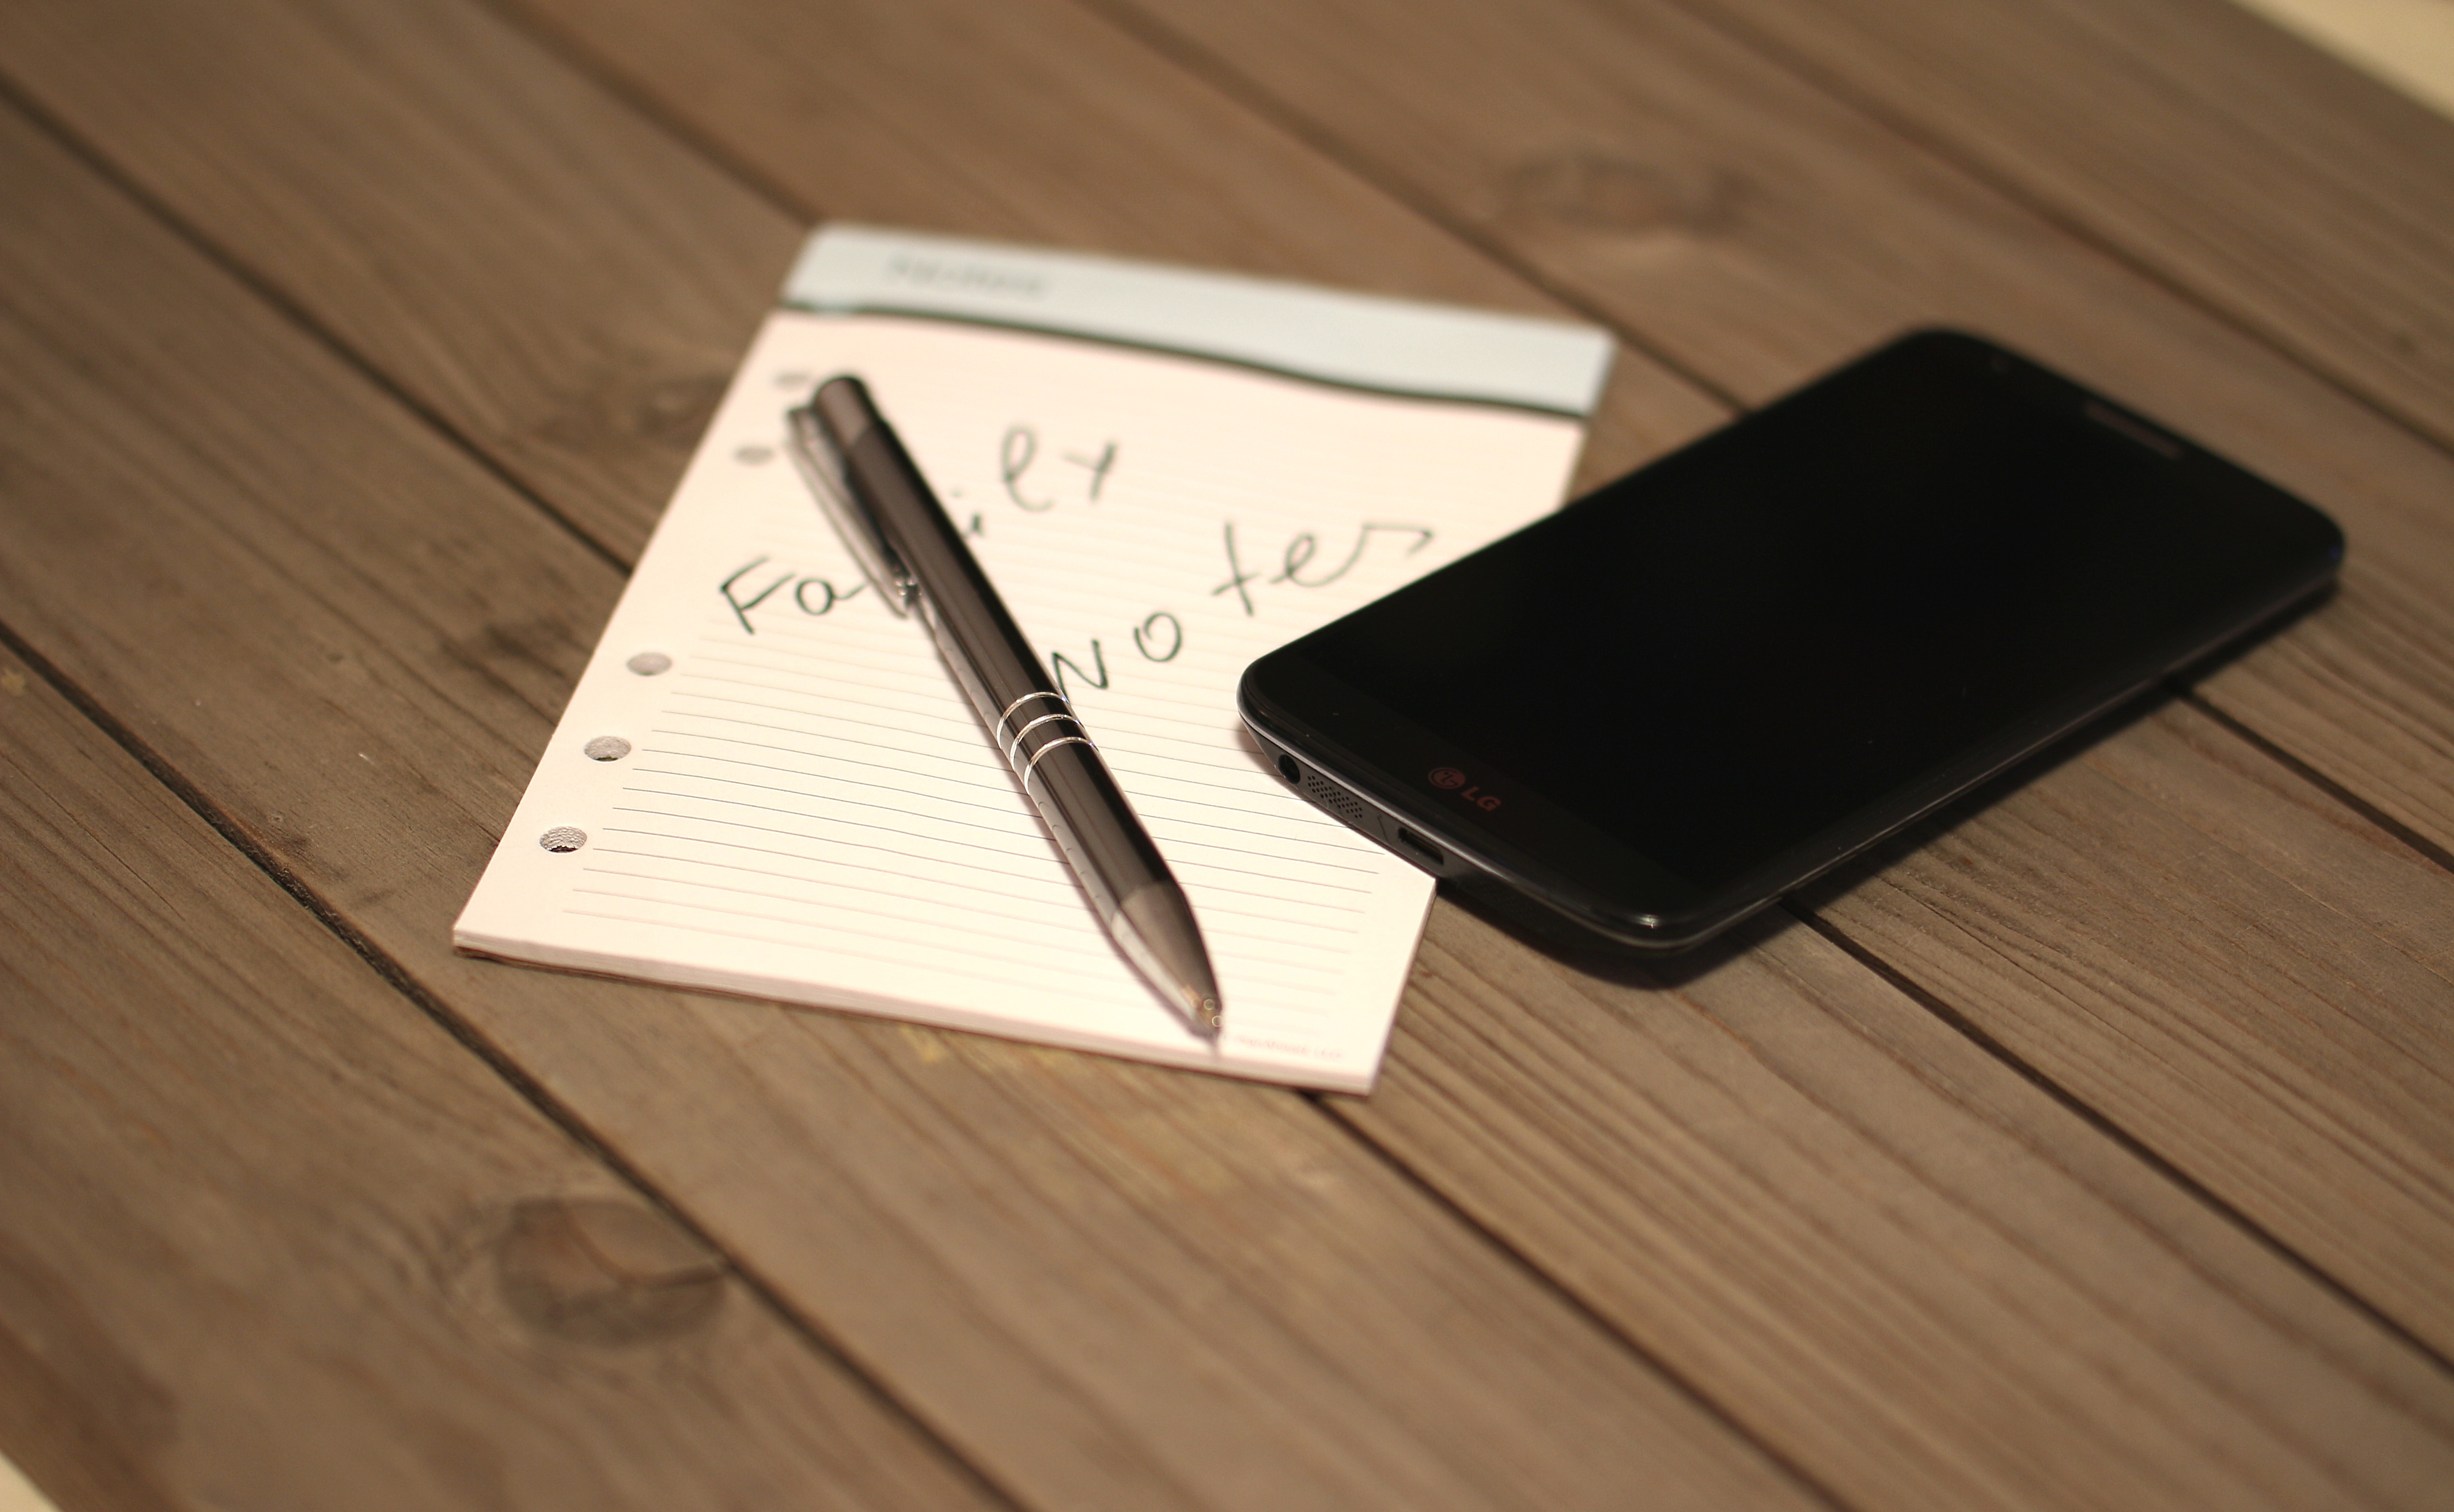 Family
Notes
LG